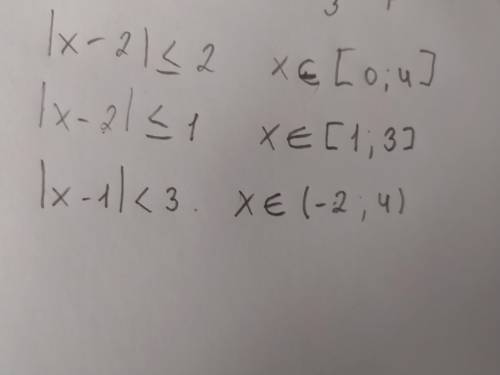 |x-2| ≤ 2 x ∈ [0;4]
|x-2| ≤ 1 x ∈ [1;3]
|x-1| < 3. x ∈ (-2;4)